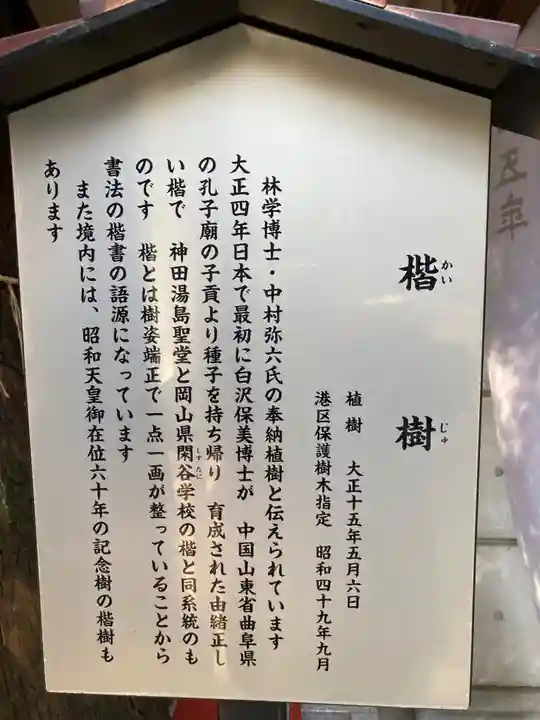 楷樹
かい じゅ
植樹 大正十五年五月六日
港区保護樹木指定 昭和四十九年九月
林学博士・中村弥六氏の奉納植樹と伝えられています
大正四年日本で最初に白沢保美博士が 中国山東省曲阜県
の孔子廟の子貢より種子を持ち帰り 育成された由緒正し
い楷で 神田湯島聖堂と岡山県閑谷学校の楷と同系統のも
しずたに
のです 楷とは樹姿端正で一点一画が整っていることから
書法の楷書の語源になっています
また境内には、昭和天皇御在位六十年の記念樹の楷樹も
あります
五年